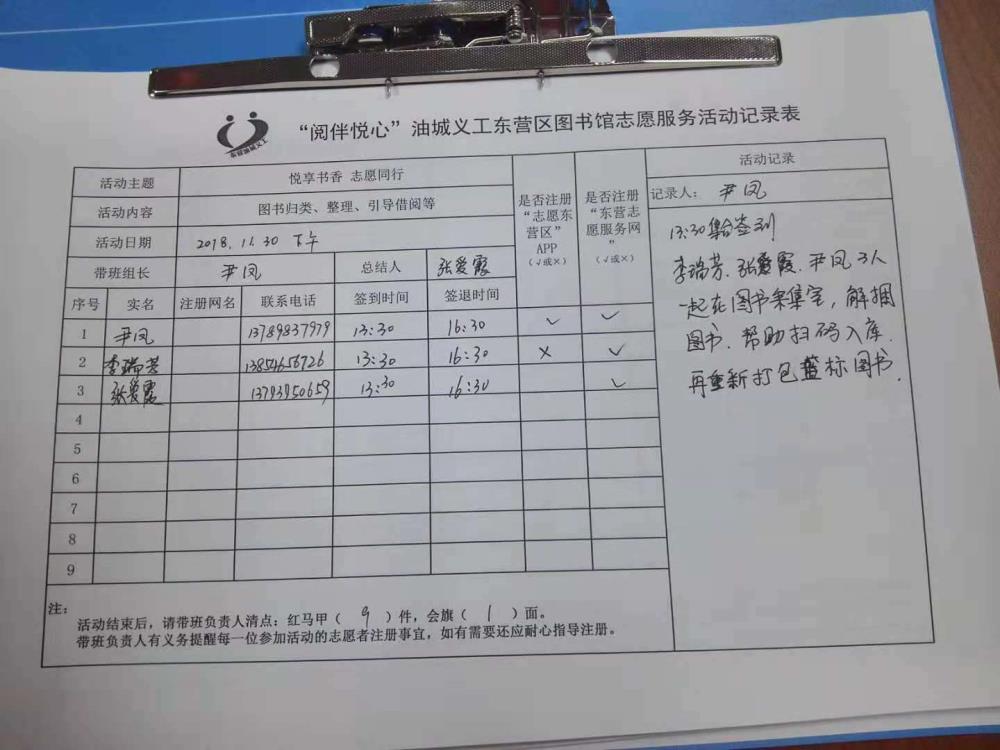 “阅伴悦心”油城义工东营区图书馆志愿服务活动记录表
东营油城义工
活动主题 悦享书香 志愿同行
活动内容 图书归类、整理、引导借阅等
活动日期 2018.11.30 下午
带班组长 尹凤 总结人 张爱霞
是否注册“志愿东营区”APP（√或×）
是否注册“东营志愿服务网”（√或×）
序号 实名 注册网名 联系电话 签到时间 签退时间
1 尹凤 13789837979 13:30 16:30 √ √
2 李瑞芳 13854656726 13:30 16:30 × √
3 张爱霞 13793950659 13:30 16:30 √
4
5
6
7
8
9
注：
活动结束后，请带班负责人清点：红马甲（ 9 ）件，会旗（ 1 ）面。
带班负责人有义务提醒每一位参加活动的志愿者注册事宜，如有需要还应耐心指导注册。
活动记录
记录人： 尹凤
13:30集合签到
李瑞芳、张爱霞、尹凤3人
一起在图书采集室，解捆
图书、帮助扫码入库.
再重新打包蓝标图书.